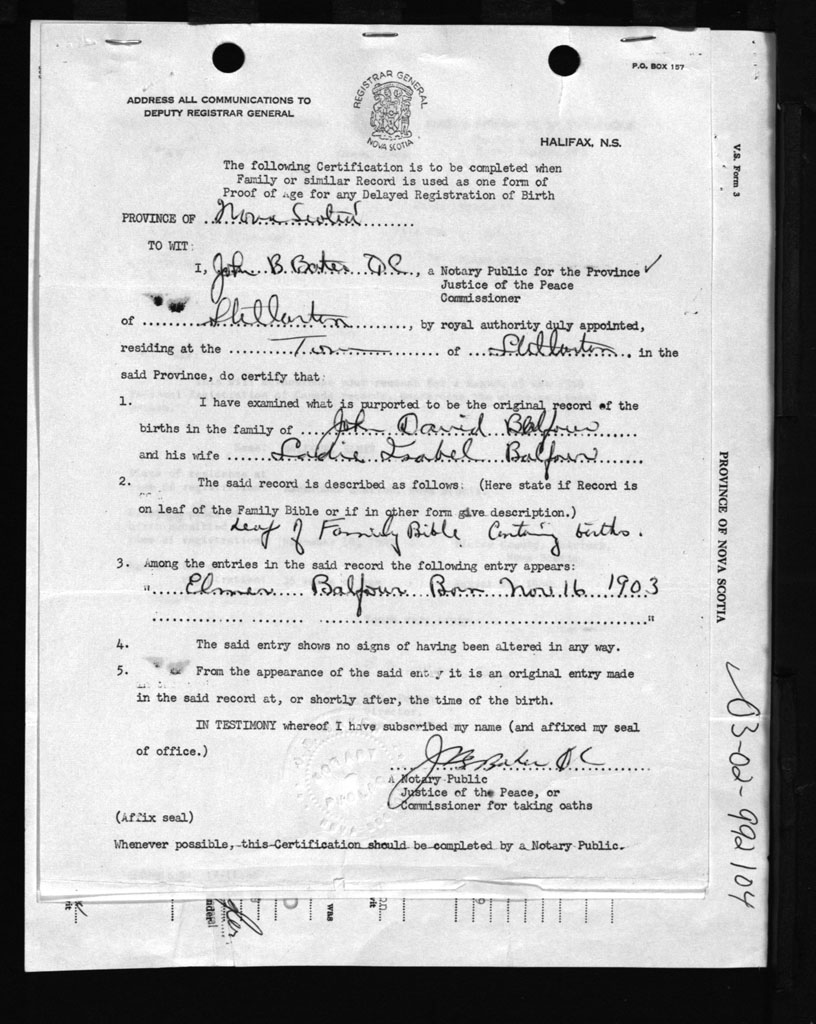 P.O. BOX 157
ADDRESS ALL COMMUNICATIONS TO
DEPUTY REGISTRAR GENERAL
REGISTRAR GENERAL
NOVA SCOTIA
HALIFAX, N.S.
V.S. Form 3
The following Certification is to be completed when
Family or similar Record is used as one form of
Proof of Age for any Delayed Registration of Birth
PROVINCE OF Nova Scotia
TO WIT:
I, John B. Baker Q.C., a Notary Public for the Province ✓
Justice of the Peace
Commissioner
of Stellarton, by royal authority duly appointed,
residing at the Town of Stellarton. in the
said Province, do certify that:
1. I have examined what is purported to be the original record of the
births in the family of John David Balfour
and his wife Sadie Isabel Balfour
2. The said record is described as follows: (Here state if Record is
on leaf of the Family Bible or if in other form give description.)
Leaf of Family Bible Containing births.
3. Among the entries in the said record the following entry appears:
" Elmer Balfour Born Nov. 16 1903
"
4. The said entry shows no signs of having been altered in any way.
5. From the appearance of the said entry it is an original entry made
in the said record at, or shortly after, the time of the birth.
IN TESTIMONY whereof I have subscribed my name (and affixed my seal
of office.)
J B Baker Q.C
A Notary Public
Justice of the Peace, or
Commissioner for taking oaths
(Affix seal)
Whenever possible, this Certification should be completed by a Notary Public.
PROVINCE OF NOVA SCOTIA
03-02-992104
was